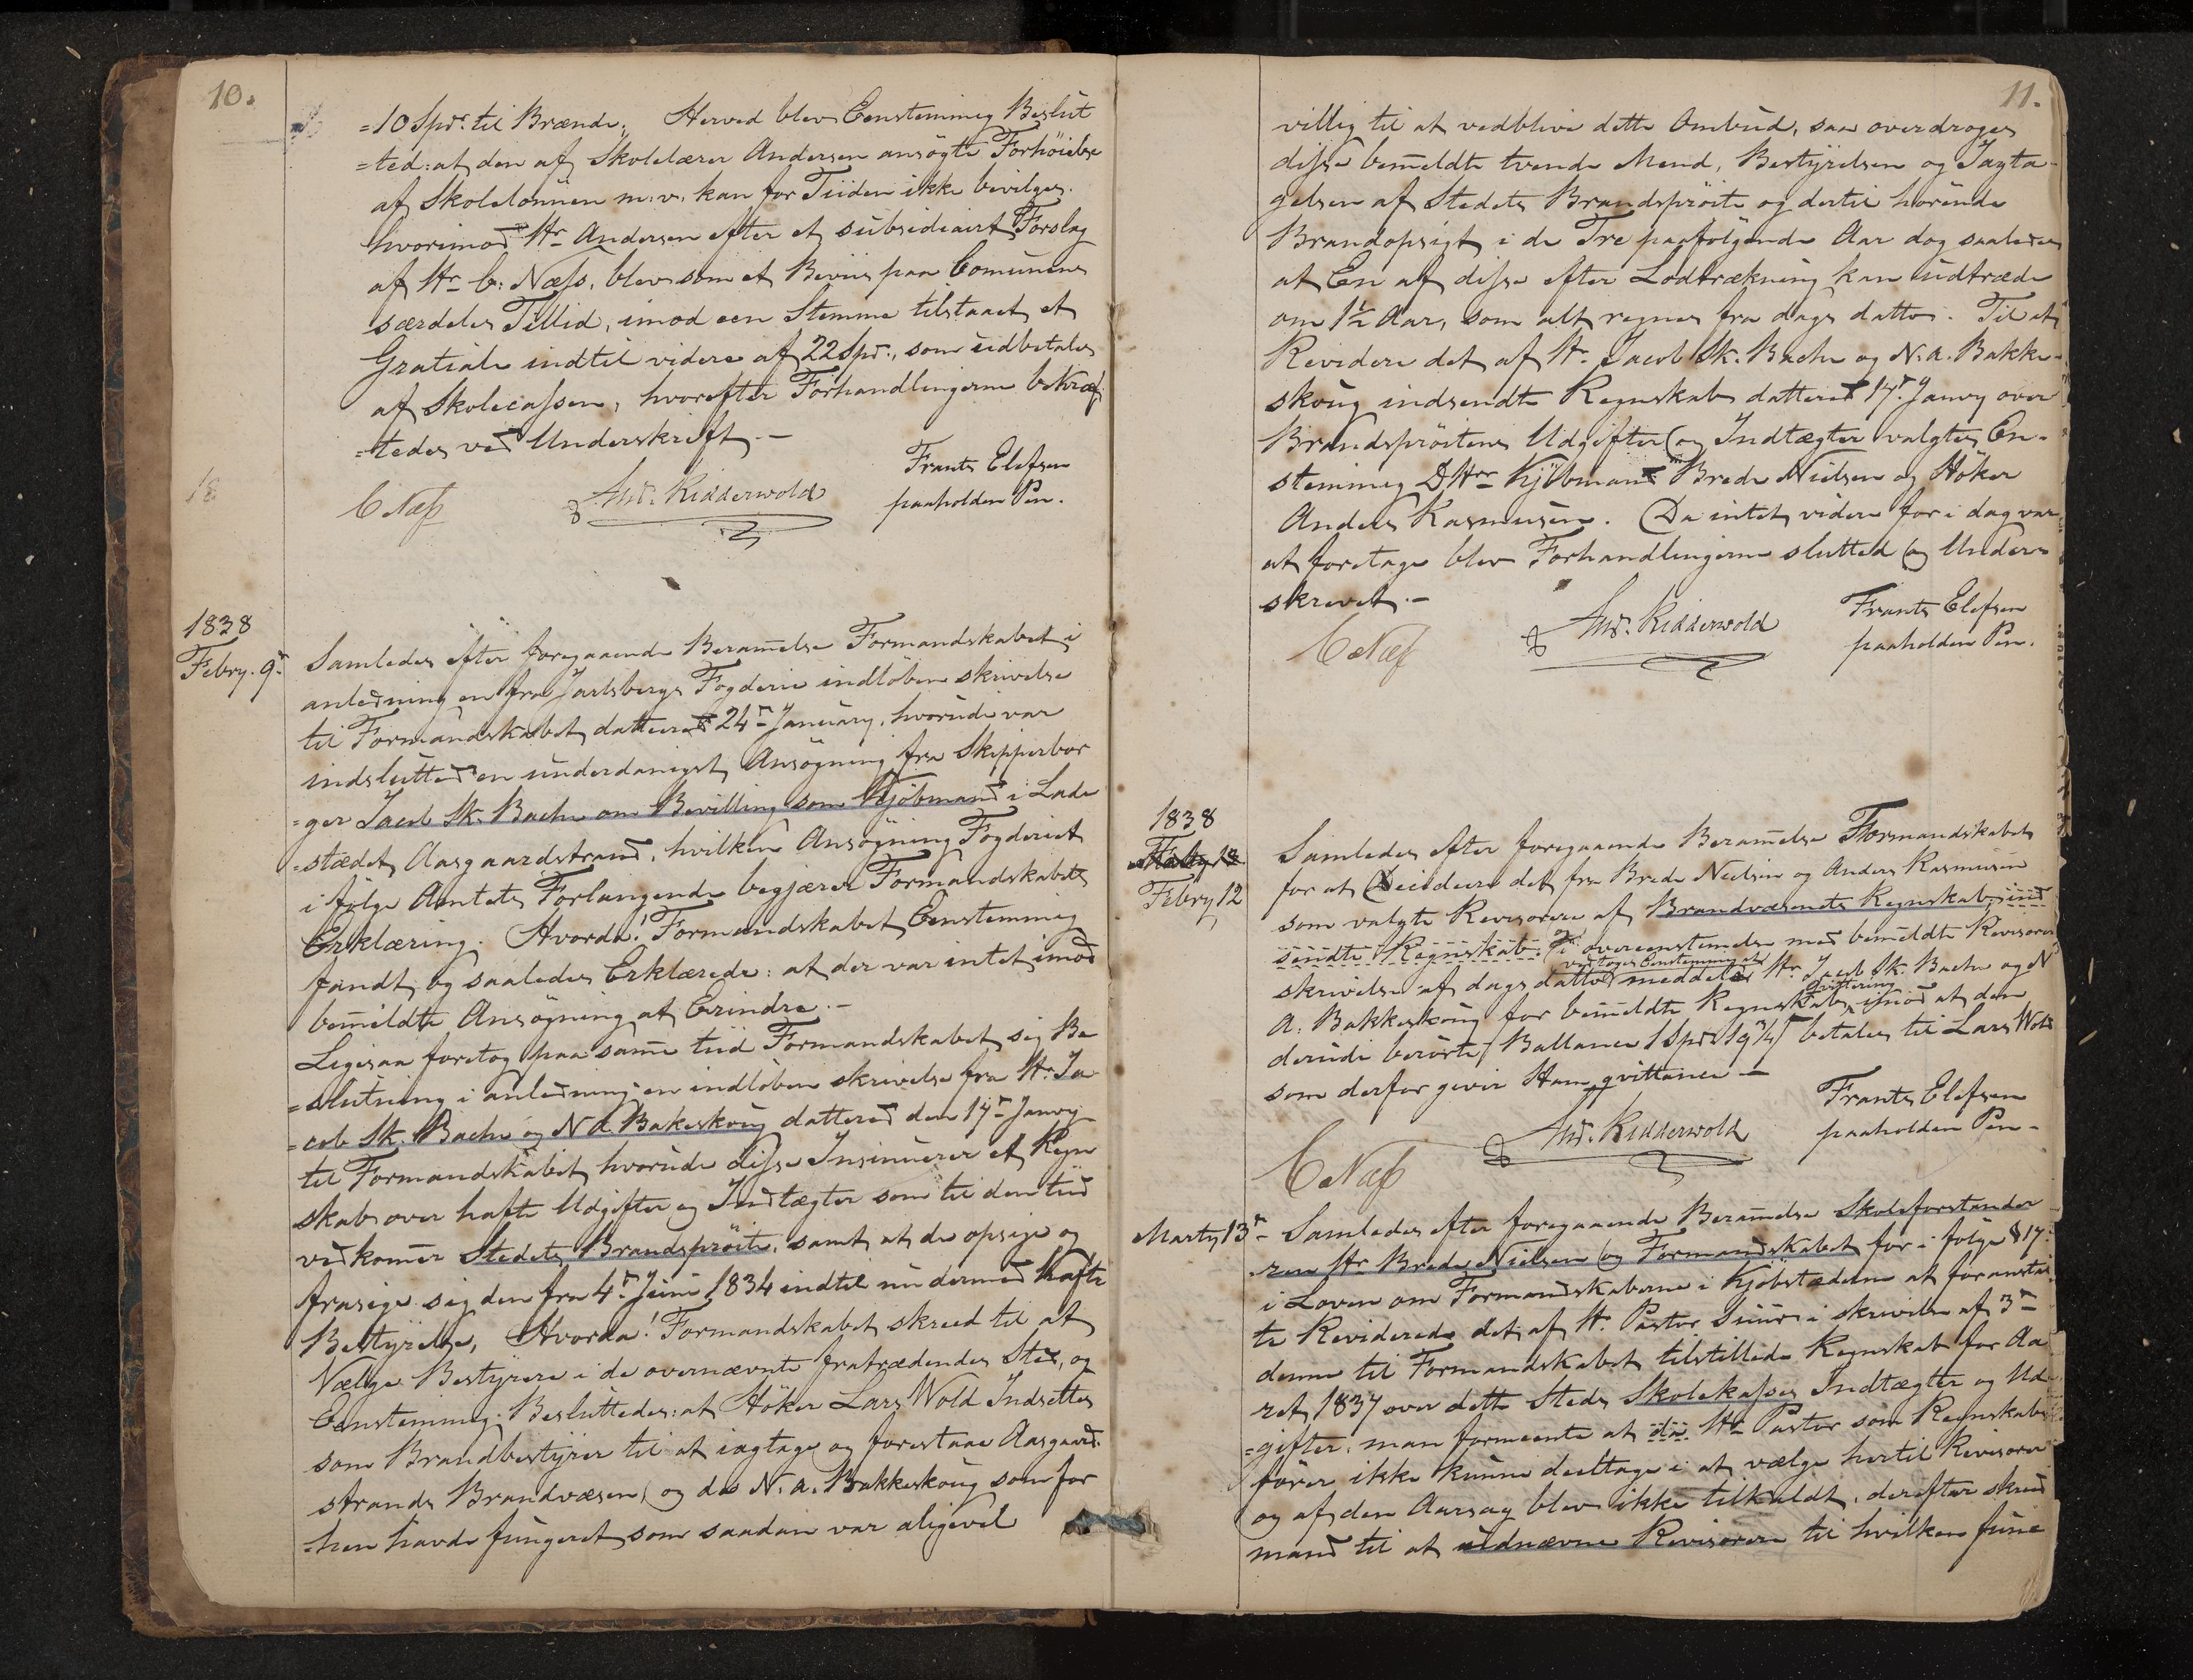 10.
=10 Spd. til Brænde. Herved blev Eenstemmig Beslut
=ted: at den af Skolelærer Andersen ansøgte Forhöielse
af Skolelönnen m: v: kan for Tiiden ikke bevilges.
hvorimod Hr Andersen efter et subsidiairt Forslag
af Hr C: Næss, blev som et Beviis paa Comunens
særdeles Tillid, imod een Stemme tilstaaet et
Gratiale indtil videre af 22 Spd., som udbetales
af Skolecassen, hvorefter Forhandlingerne bekræf
=tedes ved Underskrift.–
C Næss
And. Ridderwold
Frants Elefsen
paaholden Pen.
1838
Febry. 9d
Samledes efter foregaaende Beram̄else Formandskabet i
anledning en fra Jarlsbergs Fogderie indløben skrivelse
til Formandskabet datteret 24d January, hvorudi var
indsluttet en underdanigst Ansögning fra Skipperbor
=ger Jacob Sk. Bache om Bevilling som Kjöbmand i Lade
=stædet Aasgaardstrand, hvilken Ansögning Fogderiet
i fölge Amtets Forlangende begjærer Formandskabets
Erklæring. Hvorda! Formandskabet Eenstemmig
fandt og saaledes Erklærede: at der var intet imod
bem̄eldte Ansögning at Erindre.–
Ligesaa foretog paa sam̄e tiid Formandskabet sig Be
=slutning i anledning en indløben skrivelse fra Hr. Ja
=cob Sk. Bache og N A. Bakeskoug datteret den 17d Janry
til Formandskabet hvorudi disse Insinuerer et Regn
skab over hafte Udgifter og Indtægter som til den tiid
vedkom̄er Stedets Brandspröite, samt at de opsige og
frasige sig den fra 4d Juni 1834 indtil nu dermed hafte
Bestyrelse, Hvorda! Formandskabet skreed til at
Vælge Bestyrere i de overnævnte fratrædendes Sted, og
Eenstemmig Besluttedes: at Höker Lars Wold Indsættes
som Brandbestyrer til at iagtage og forestaae Aasgaard
strands Brandvæsen, og da N. A. Bakkeskoug som før
hen havde fungeret som saadan var aligevel
11.
villig til at vedblive dette Ombud, saa overdroges
disse bem̄eldte tvende Mend, Bestyrelsen og Iagta-
gelsen af Stedets Brandspröite og dertil hörende
Brandopsigt i de Tre paafölgende Aar dog saaledes
at En af disse efter Lodtrækning kan udtræde
om 1½ Aar, som alt regnes fra dags datto. Til at
Revidere det af Hr. Jacob Sk. Bache og N. A. Bakke-
skoug indsendte Regnskab datteret 17d. Janry over
Brandspröitens Udgifter og Indtægter valgtes En-
stemmig DHrr Kjöbmand Brede Nielsen og Höker
Anders Rasmusen. Da intet videre for i dag var
at foretage blev Forhandlingerne sluttet og Under-
skrevet.–
C Næss
And. Ridderwold
Frants Elefsen
paaholden Pen.
1838
Febry 12
Samledes efter foregaaende Beram̄else Formandskabet
for at Deecidere det fra Brede Nielsen og Anders Rasmusen
som valgte Revisorer af Brandvæsenets Regnskab, ind
sendte Regnskab. I overeenstemmelse med bem̄eldte Revisorers
vedtoges Eenstemmig at
skrivelse af dags datto meddeles Hr Jacob Sk. Bache og N
qvittering
A. Bakkeskoug for bem̄eldte Regnskab, imod at den
derudi berörte Ballance 1 Spd 19 ¼ betales til Lars Wold
som derfor giver Ham qvittance –
C Næss
And. Ridderwold
Frants Elefsen
paaholden Pen-
Marty 13d
Samledes efter foregaaende Beram̄else Skoleforstander
ren Hr Brede Nielsen og Formandskabet for i fölge § 17.
i Loven om Formandskaberne i Kjöbstæderne at foranstal
te Reviderede det af Hr. Pastor Suur i skrivelse af 3d
denne til Formandskabet tilstillede Regnskab for Aa
ret 1837 over dette Steds Skolekasses Indtægter og Ud
=gifter. man formeente at da Hr Pastor som Regnskabs
förer ikke kunne deeltage i at vælge hertil Revisorer
og af den Aarsag blev ikke tilkaldt, derefter skreed
mand til at udnævne Revisorer til hvilken func